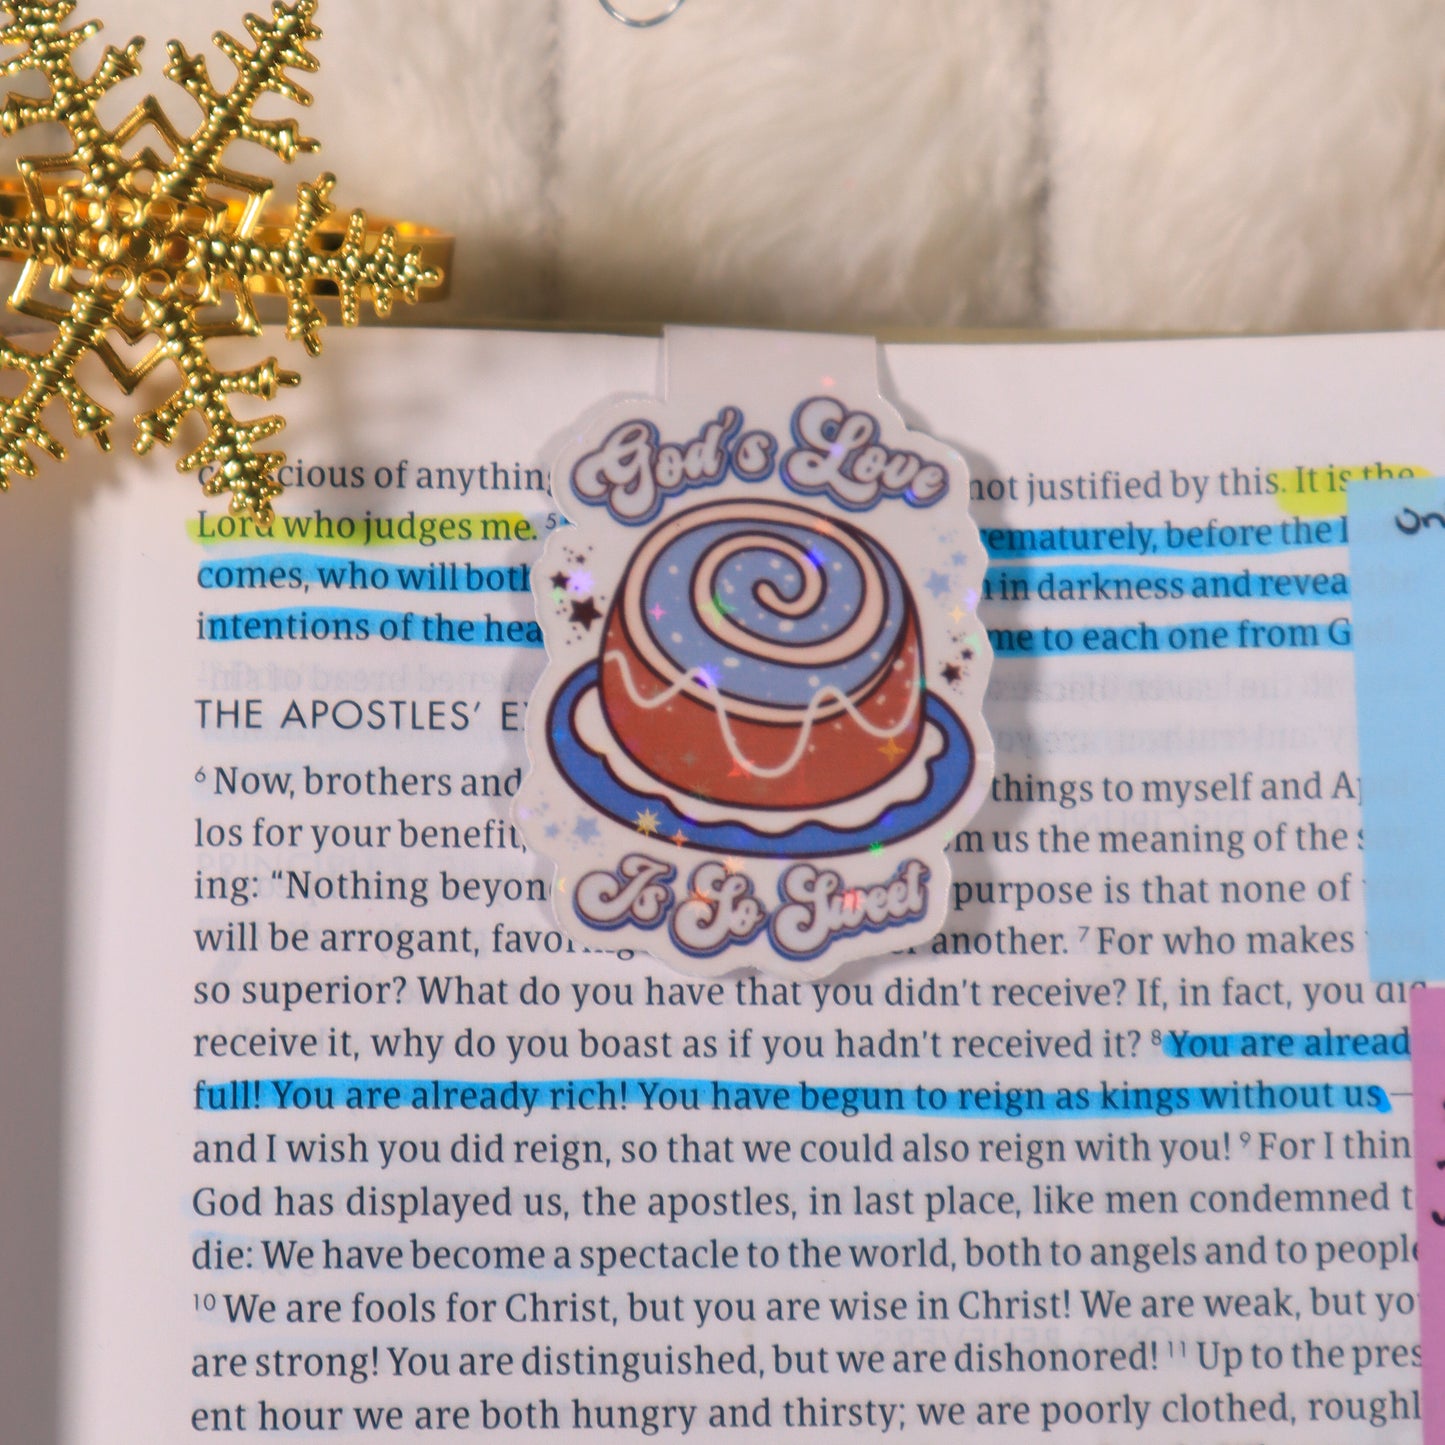 God's Love
Is So Sweet
of anything not justified by this. It is the
Lord who judges me. 5 before the
comes, who will both in darkness and
intentions of the me to each one from
THE APOSTLES'
6 Now, brothers and things to myself and
los for your benefit, us the meaning of the
ing: “Nothing purpose is that none of
will be arrogant, another. 7 For who makes
so superior? What do you have that you didn't receive? If, in fact, you did
receive it, why do you boast as if you hadn't received it? 8 You are alread
full! You are already rich! You have begun to reign as kings without us—
and I wish you did reign, so that we could also reign with you! 9 For I thin
God has displayed us, the apostles, in last place, like men condemned t
die: We have become a spectacle to the world, both to angels and to people
10 We are fools for Christ, but you are wise in Christ! We are weak, but yo
are strong! You are distinguished, but we are dishonored! 11 Up to the pres
ent hour we are both hungry and thirsty; we are poorly clothed, roughl